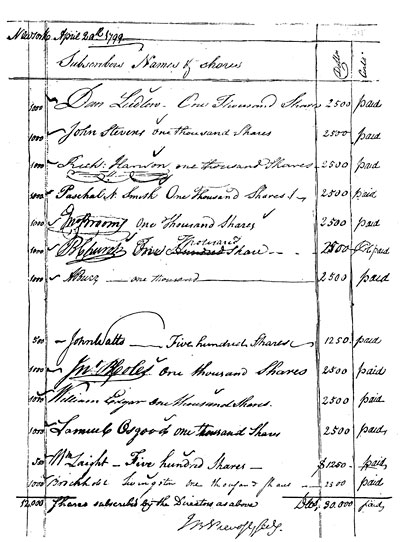 Newyork April 22d. 1799
Subscribers Names of shares Dolls Cents
1000 Dan Ludlow - One Thousand Shares 2500 paid
1000 John Stevens one thousand Shares 2500 paid
1000 one thousand Shares 2500 paid
1000 Paschal N. Smith One Thousand Shares 2500 paid
1000 Jno Broom One Thousand Shares 2500 paid
1000 B Church One Thousand Hundred Share 2500 paid
1000 A Burr one thousand 2500 paid
500 John Watts Five hundred Shares 1250 paid
1000 Jno. B Coles One thousand Shares 2500 paid
1000 William Edgar one thousand Shares. 2500 paid
1000 Samuel Osgood one thousand Shares 2500 paid
500 Wm Laight - Five hundred Shares - $1250 - paid
1000 Brockholst Livingston one thousand Shares 2500 paid
12,000 Shares subscribed by the Directors as above Dlls. 30,000 paid